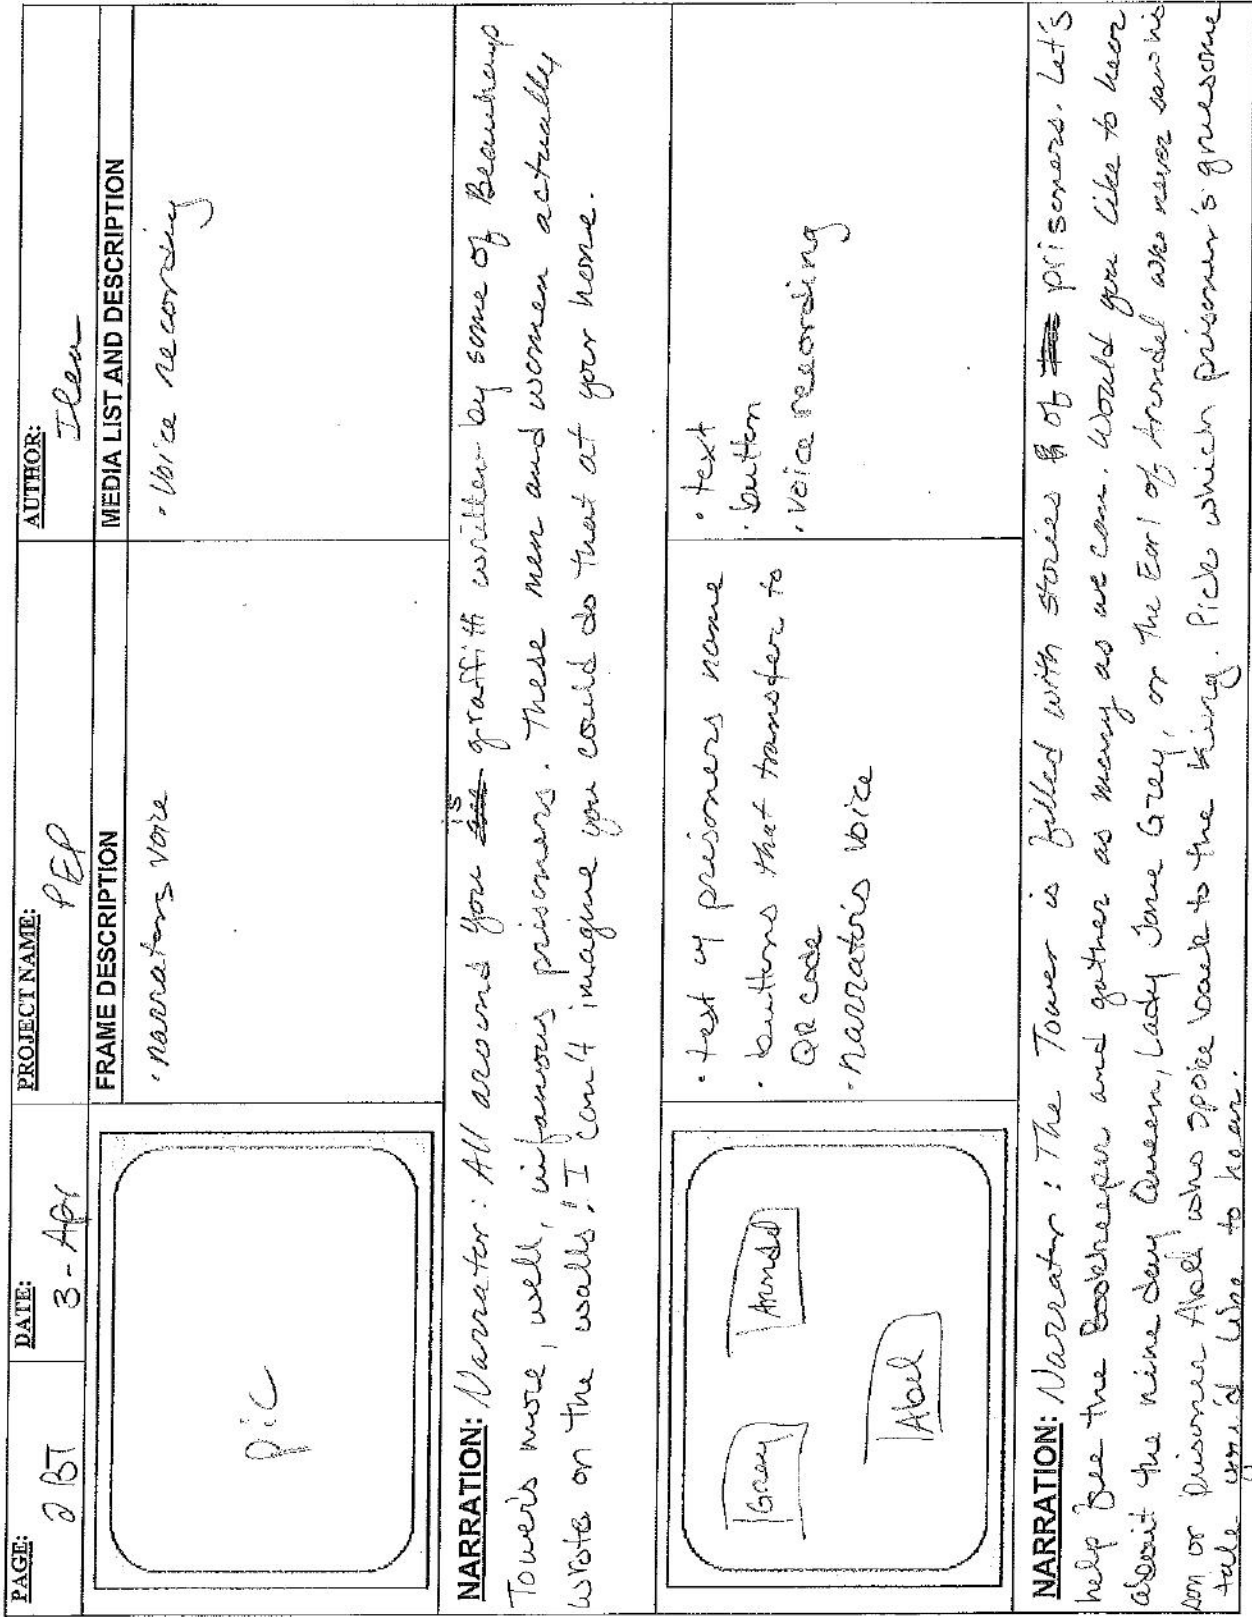 PAGE: 2BT
DATE: 3-Apr
PROJECT NAME: PEP
AUTHOR: Ilea
FRAME DESCRIPTION
MEDIA LIST AND DESCRIPTION
pic
• narrators voice
• Voice recording
NARRATION: Narrator: All around you is graffiti written by some of Beauchamp
Tower's more, well, infamous prisoners. These men and women actually
wrote on the walls! I can't imagine you could do that at your home.
Grey
Arundel
Abel
• text of prisoners name
• buttons that transfer to
QR code
• narrator's voice
• text
• button
• voice recording
NARRATION: Narrator: The Tower is filled with stories of prisoners. Let's
help free the Bookkeeper and gather as many as we can. Would you like to hear
about the nine day Queen, Lady Jane Grey, or the Earl of Arundel who never saw his
son or Prisoner Abel who spoke back to the king. Pick which prisoner's gruesome
tale you'd like to hear.